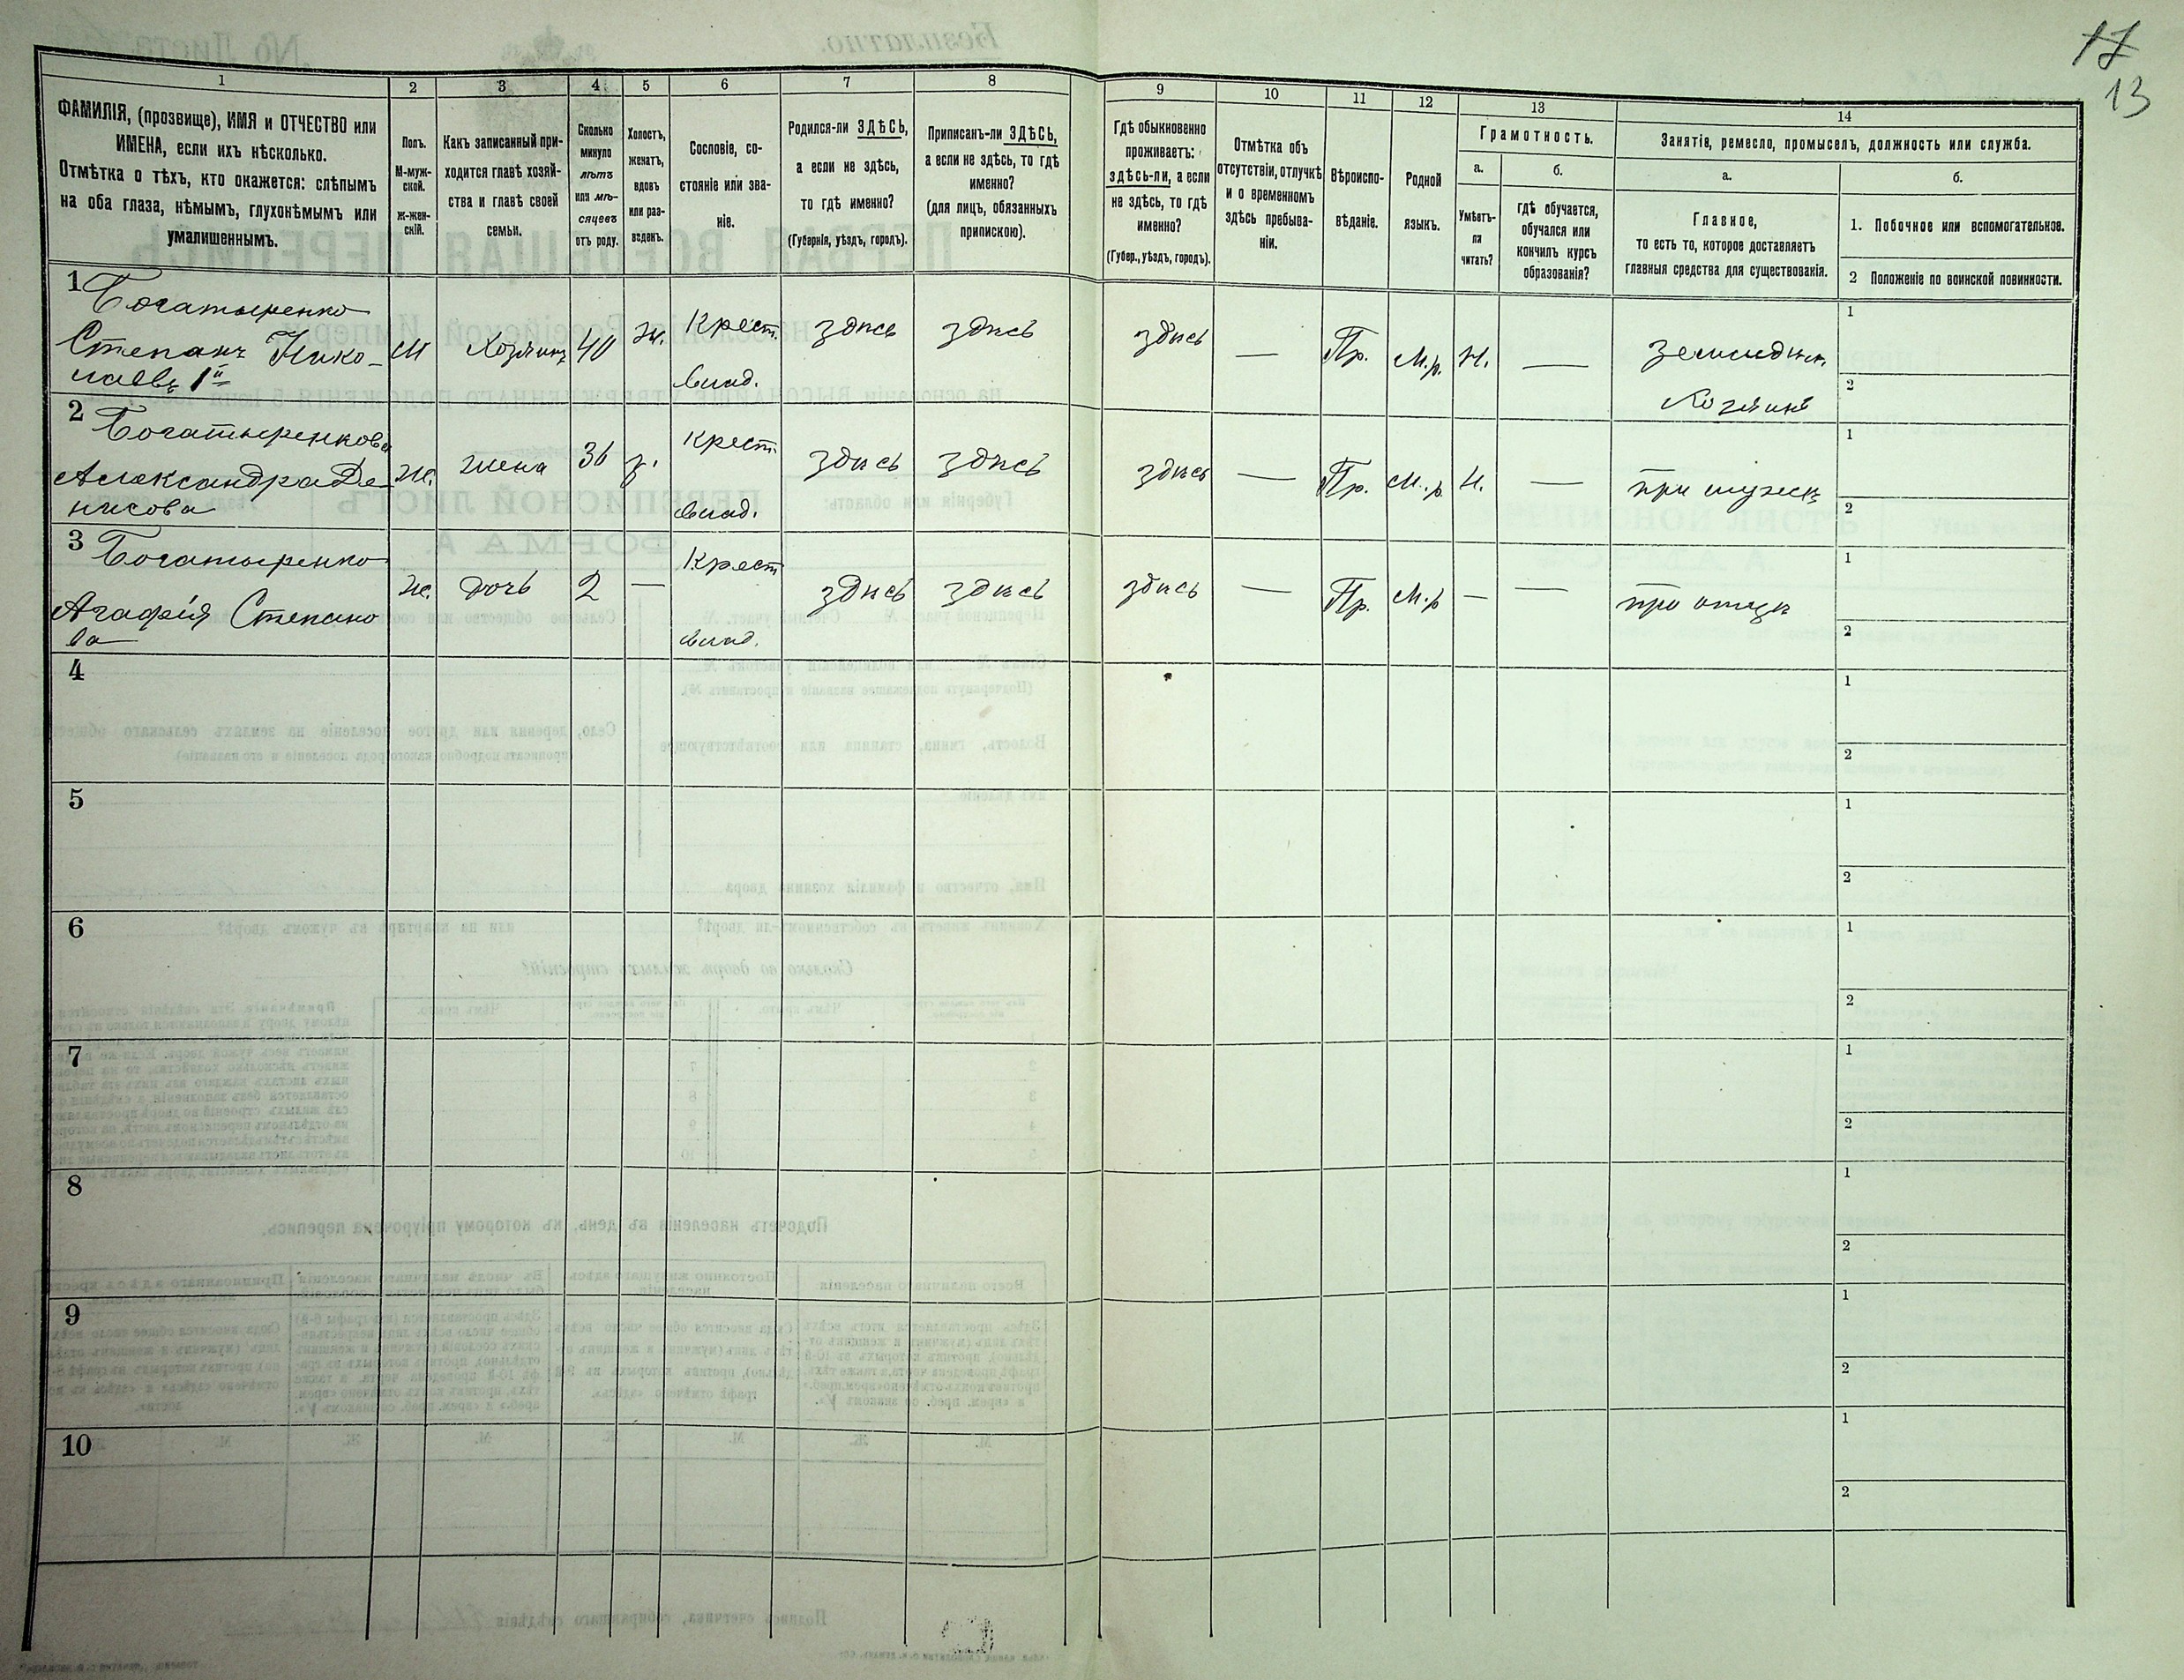 17
13
1
2
3
4
5
6
7
8
9
10
11
12
13
14
ФАМИЛІЯ, (прозвище), ИМЯ и ОТЧЕСТВО или
ИМЕНА, если ихъ нѣсколько.
Отмѣтка о тѣхъ, кто окажется: слѣпымъ
на оба глаза, нѣмымъ, глухонѣмымъ или
умалишеннымъ.
Полъ.
М-муж-
ской.
Ж-жен-
скій.
Какъ записанный при-
ходится главѣ хозяй-
ства и главѣ своей
семьи.
Сколько
минуло
лѣтъ
или мѣ-
сяцевъ
отъ роду.
Холостъ,
женатъ,
вдовъ
или раз-
веденъ.
Сословіе, со-
стояніе или зва-
ніе.
Родился-ли ЗДѢСЬ,
а если не здѣсь,
то гдѣ именно?
(Губернія, уѣздъ, городъ).
Приписанъ-ли ЗДѢСЬ,
а если не здѣсь, то гдѣ
именно?
(для лицъ, обязанныхъ
припискою).
Гдѣ обыкновенно
проживаетъ:
здѣсь-ли, а если
не здѣсь, то гдѣ
именно?
(Губер., уѣздъ, городъ).
Отмѣтка объ
отсутствіи, отлучкѣ
и о временномъ
здѣсь пребыва-
ніи.
Вѣроиспо-
вѣданіе.
Родной
языкъ.
Грамотность.
а.
Умѣетъ-
ли
читать?
б.
гдѣ обучается,
обучался или
кончилъ курсъ
образованія?
Занятія, ремесло, промыселъ, должность или служба.
а.
Главное,
то есть то, которое доставляетъ
главныя средства для существованія.
б.
1. Побочное или вспомогательное.
2 Положеніе по воинской повинности.
1
Богатыренко
Степанъ Нико-
лаевъ 1й
М
Хозяинъ
40
ж.
Крест.
влад.
здѣсь
здѣсь
здѣсь
—
Пр.
М.р.
Н.
—
земледѣл.
Хозяинъ
1
2
2
Богатыренкова
Александра Де-
нисова
Ж.
жена
36
з.
Крест.
влад.
здѣсь
здѣсь
здѣсь
—
Пр.
М.р
Н.
—
при мужѣ
1
2
3
Богатыренко
Агафія Степано
ва
Ж.
дочь
2
—
Крест
влад.
здѣсь
здѣсь
здѣсь
—
Пр.
М.р
—
—
при отцѣ
1
2
4
1
2
5
1
2
6
1
2
7
1
2
8
1
2
9
1
2
10
1
2